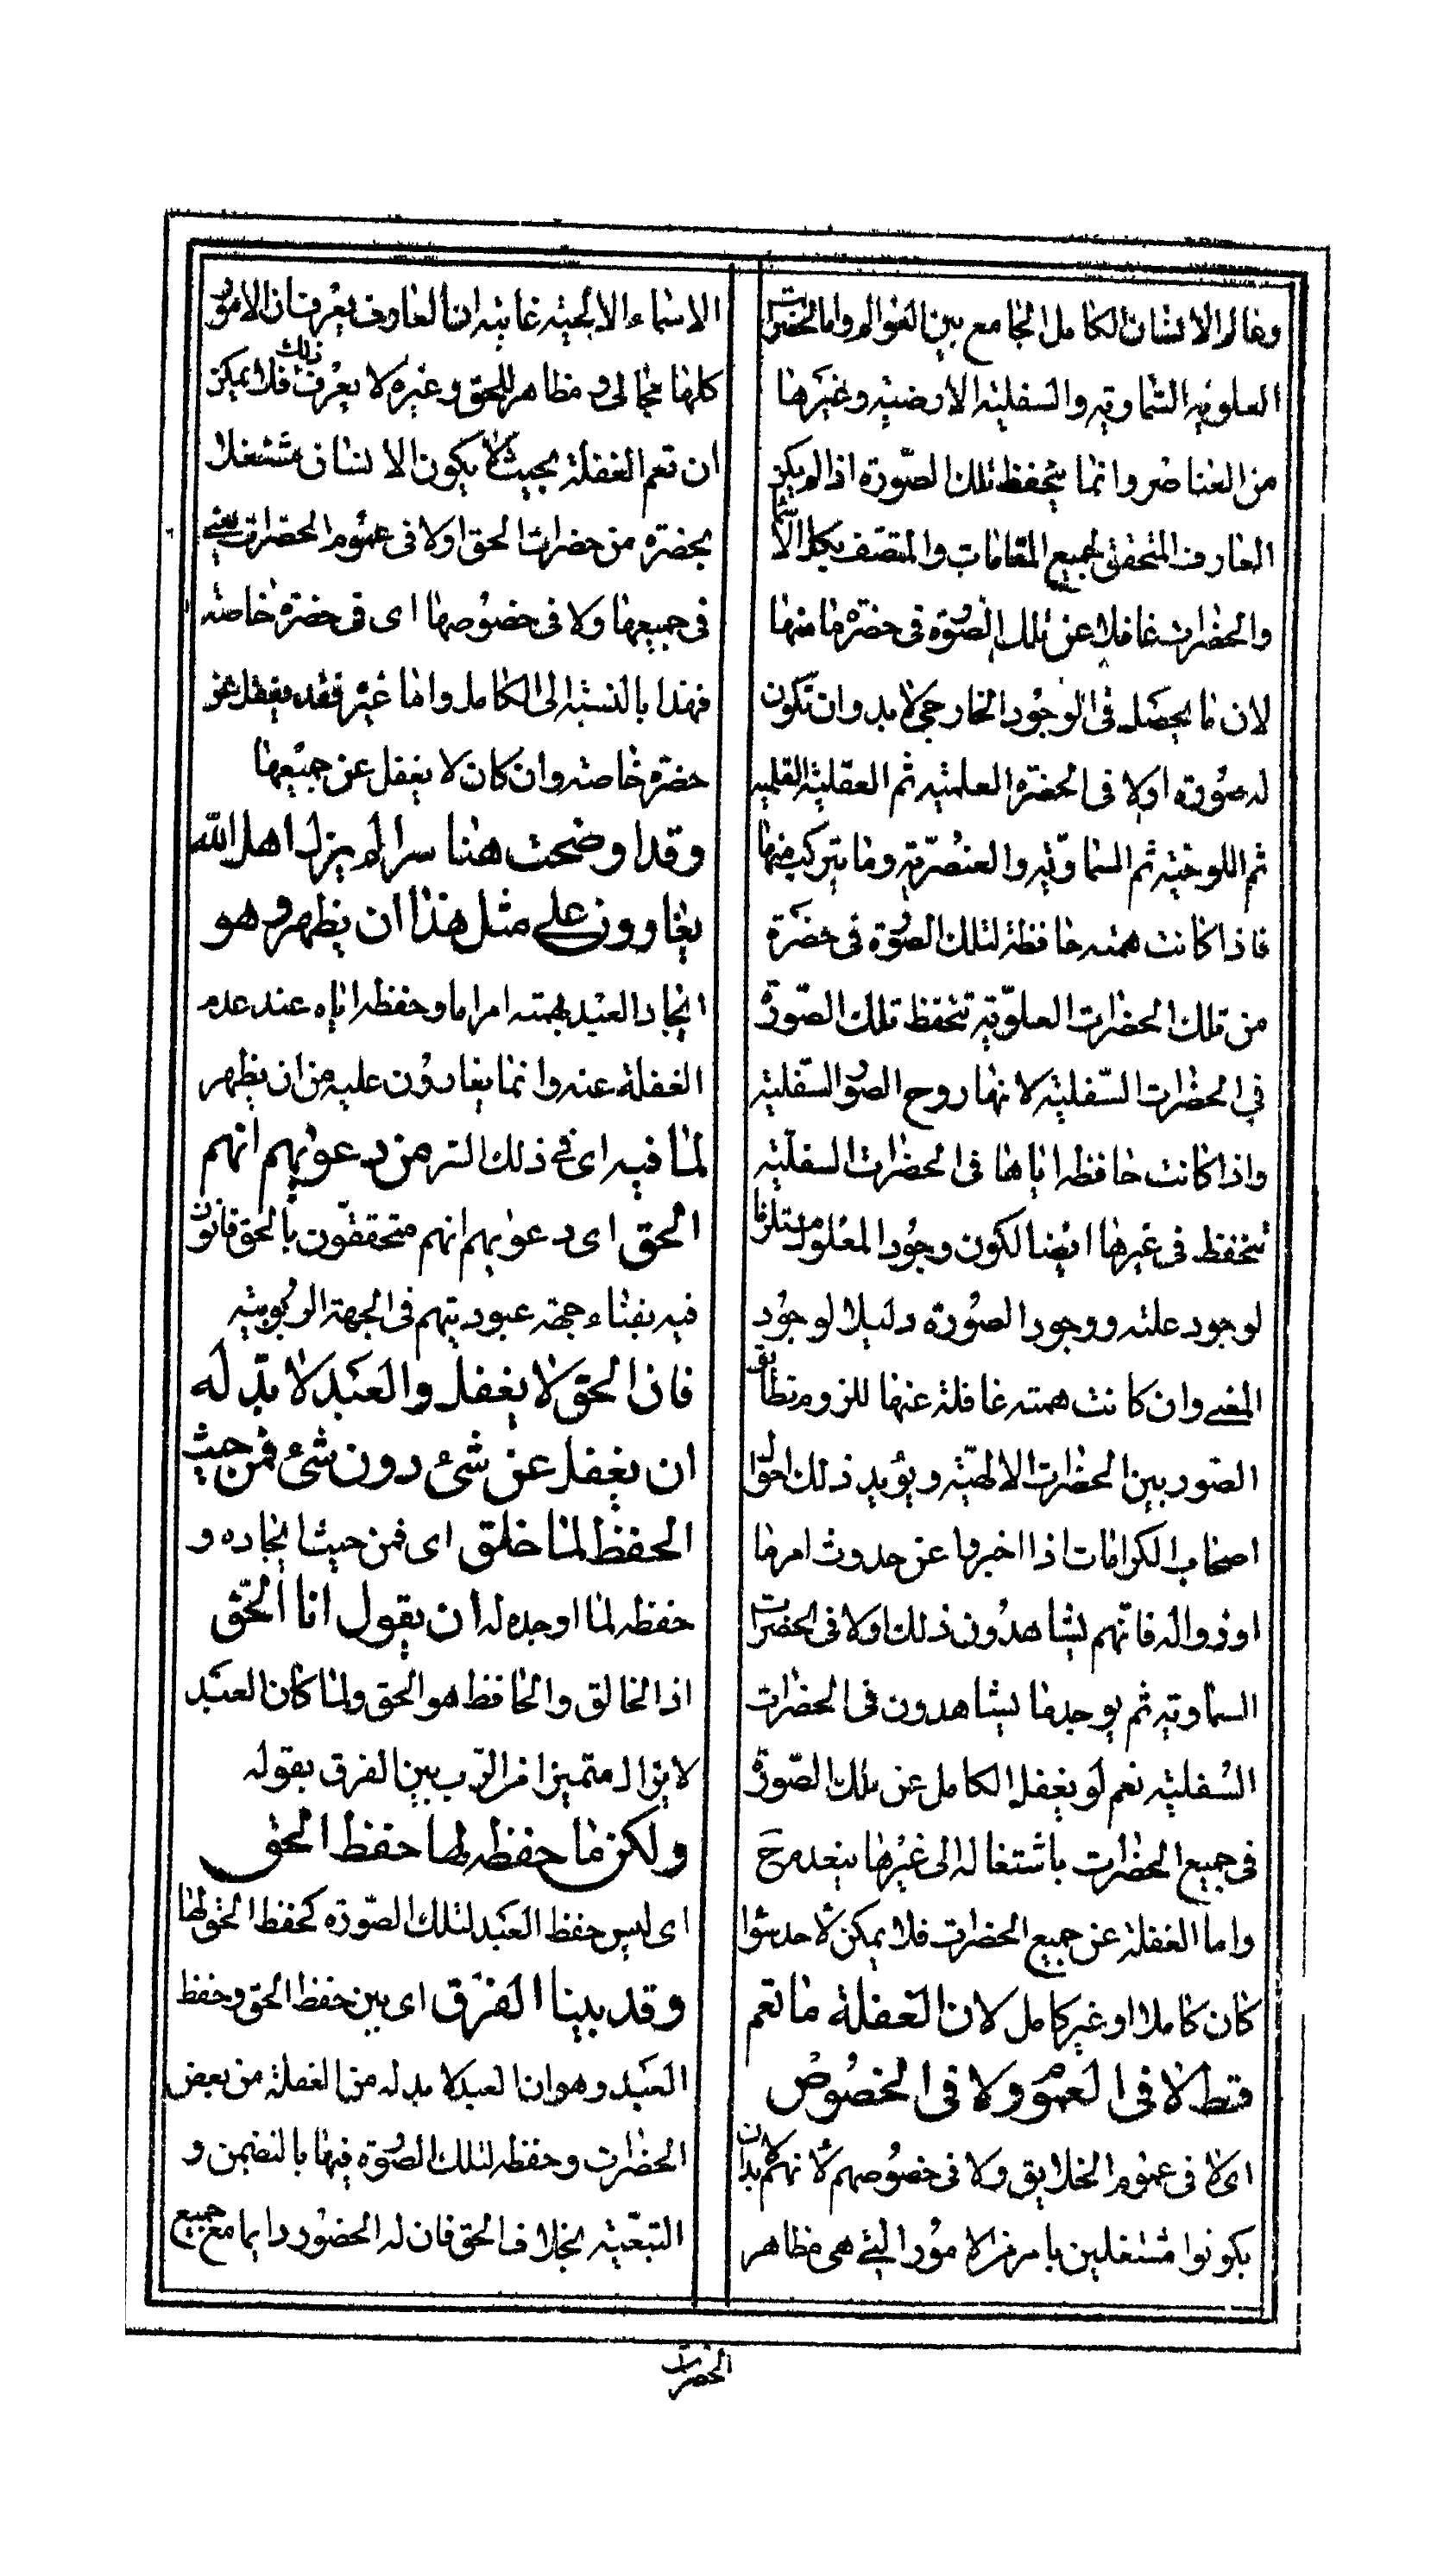 وعالم الانسان الكامل الجامع بين العوالم واما الحضرات
العلوية السماوية والسفلية الارضية وغيرها
من العناصر وانما ينحفظ تلك الصورة اذا لم يكن
العارف المتحقق لجميع المقامات والمتصف بكل الاسماء
والحضرات غافلا عن تلك الصورة في حضرة ما منها
لان ما يحصل في الوجود الخارجي لا بد وان تكون
له صورة اولا في الحضرة العلمية ثم العقلية القلمية
ثم اللوحية ثم السماوية والعنصرية وما يتركب منها
فاذا كانت همته حافظة لتلك الصورة في حضرة
من تلك الحضرات العلوية تنحفظ تلك الصورة
في الحضرات السفلية لانها روح الصور السفلية
واذا كانت حافظه اياها في الحضرات السفلية
تنحفظ في غيرها ايضا لكون وجود المعلول مستلزما
لوجود علته ووجود الصورة دليلا لوجود
المعنى وان كانت همته غافلة عنها للزوم تطابق
الصور بين الحضرات الالهية ويؤيد ذلك احوال
اصحاب الكرامات اذا اخبروا عن حدوث امر ما
او زواله فانهم يشاهدون ذلك اولا في الحضرات
السماوية ثم يوجد ما يشاهدون في الحضرات
السفلية نعم لو يغفل الكامل عن تلك الصورة
في جميع الحضرات باشتغاله الى غيرها ينعدم ح
واما الغفلة عن جميع الحضرات فلا يمكن لاحد سوا
كان كاملا او غير كامل لان الغفلة ما تعم
قط لا في العموم ولا في الخصوص
اى لا في عموم الخلايق ولا في خصوصهم لانهم لا بد ان
يكونوا مشتغلين بامر من الامور التي هي مظاهر
الاسماء الالهية غايته ان العارف يعرف ان الامور
كلها مجالى ومظاهر للحق وغيره لا يعرف ذلك فلا يمكن
ان تعم الغفلة بحيث لا يكون الانسان مشتغلا
بحضرة من حضرات الحق اولا في عموم الحضرات يعني
في جميعها ولا في خصوصها اى في حضرة خاصة
فهذا بالنسبة الى الكامل واما غيره فقد يغفل عن
حضرة خاصة وان كان لا يغفل عن جميعها
وقد اوضحت هنا سرا لم يزل اهل الله
يغارون على مثل هذا ان يظهر وهو
ايجاد العبد بهمته امرا ما وحفظه اياه عند عدم
الغفلة عنه وانما يغارون عليه من ان يظهر
لما فيه اى في ذلك السر من دعويهم انهم
الحق اى دعويهم انهم متحققون بالحق فانون
فيه بفناء جهة عبوديتهم في الجهة الربوبية
فان الحق لا يغفل والعبد لا بد له
ان يغفل عن شئ دون شئ فمن حيث
الحفظ لما خلق اى فمن حيث ايجاده و
حفظه لما اوجده له ان يقول انا الحق
اذ الخالق والحافظ هو الحق ولما كان العبد
لا يزال متميزا من الرب بين الفرق بقوله
ولكن ما حفظه لها حفظ الحق
اى ليس حفظ العبد لتلك الصورة كحفظ الحق لها
وقد بينا الفرق اى بين حفظ الحق وحفظ
العبد وهو ان العبد لا بد له من الغفلة من بعض
الحضرات وحفظه لتلك الصورة فيها بالتضمن و
التبعية بخلاف الحق فان له الحضور دايما مع جميع
الحضرات